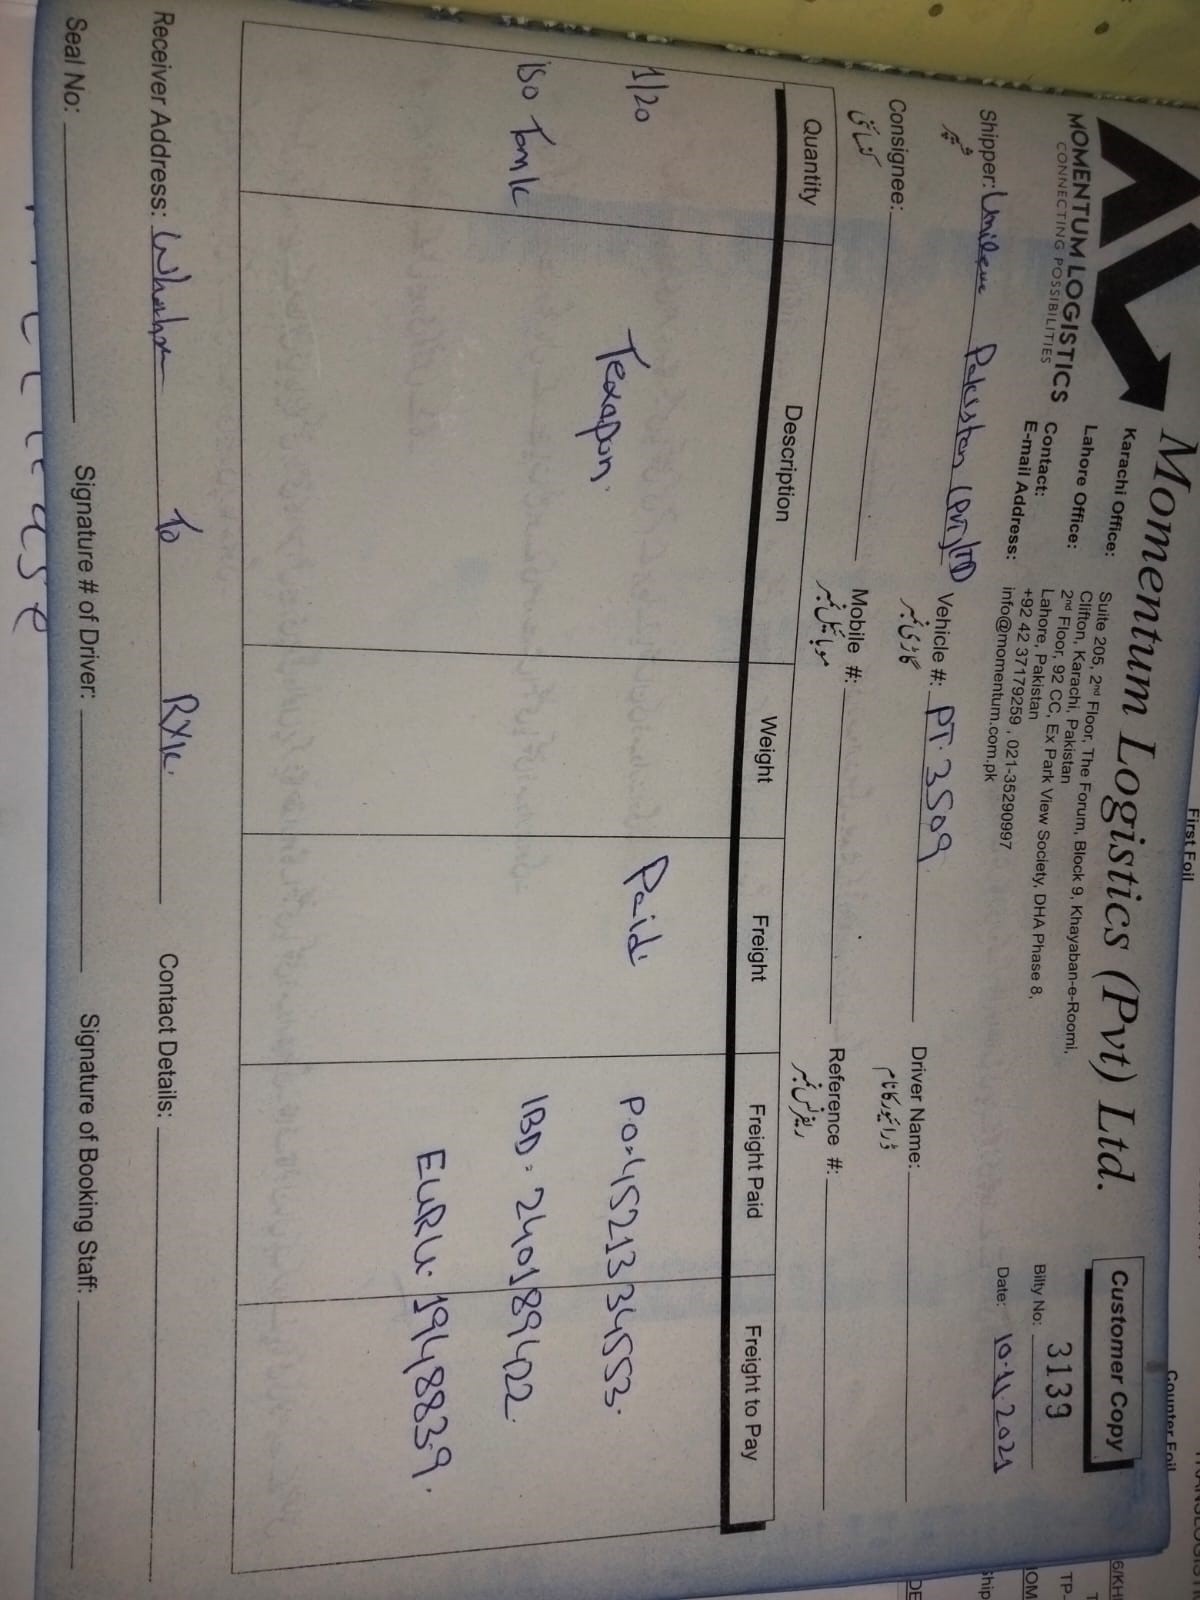 First Foil
Counter Foil
Momentum Logistics (Pvt) Ltd.
MOMENTUM LOGISTICS
CONNECTING POSSIBILITIES
Karachi Office: Suite 205, 2nd Floor, The Forum, Block 9, Khayaban-e-Roomi,
Clifton, Karachi, Pakistan
Lahore Office: 2nd Floor, 92 CC, Ex Park View Society, DHA Phase 8,
Lahore, Pakistan
Contact: +92 42 37179259 , 021-35290997
E-mail Address: info@momentum.com.pk
Customer Copy
Bilty No: 3139
Date: 10-11-2021
Shipper: Unileve Pakistan (PVT) LTD
شپر
Vehicle #: PT-3509
گاڑی نمبر
Driver Name:
ڈرائیور کا نام
Consignee:
کنسائنی
Mobile #:
موبائیل نمبر
Reference #:
ریفرنس نمبر
Quantity Description Weight Freight Freight Paid Freight to Pay
1/20 Texapon Paid P.O-4521334553.
ISO Tank IBD: 240189422.
EURU. 1948839.
Receiver Address: To RYK.
Contact Details:
Seal No:
Signature # of Driver:
Signature of Booking Staff: